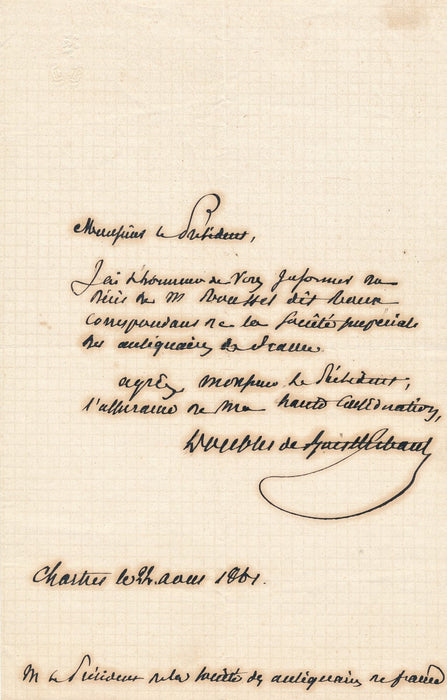 Monsieur le Président,
J'ai l'honneur de vous informer du
décès de M Roussel dit
correspondant de la Société impériale
des antiquaires de France
agréez Monsieur le Président,
l'assurance de ma haute considération,
Doublet de Boisthibault
Chartres le 22 aout 1861.
M le Président de la Société des antiquaires de france